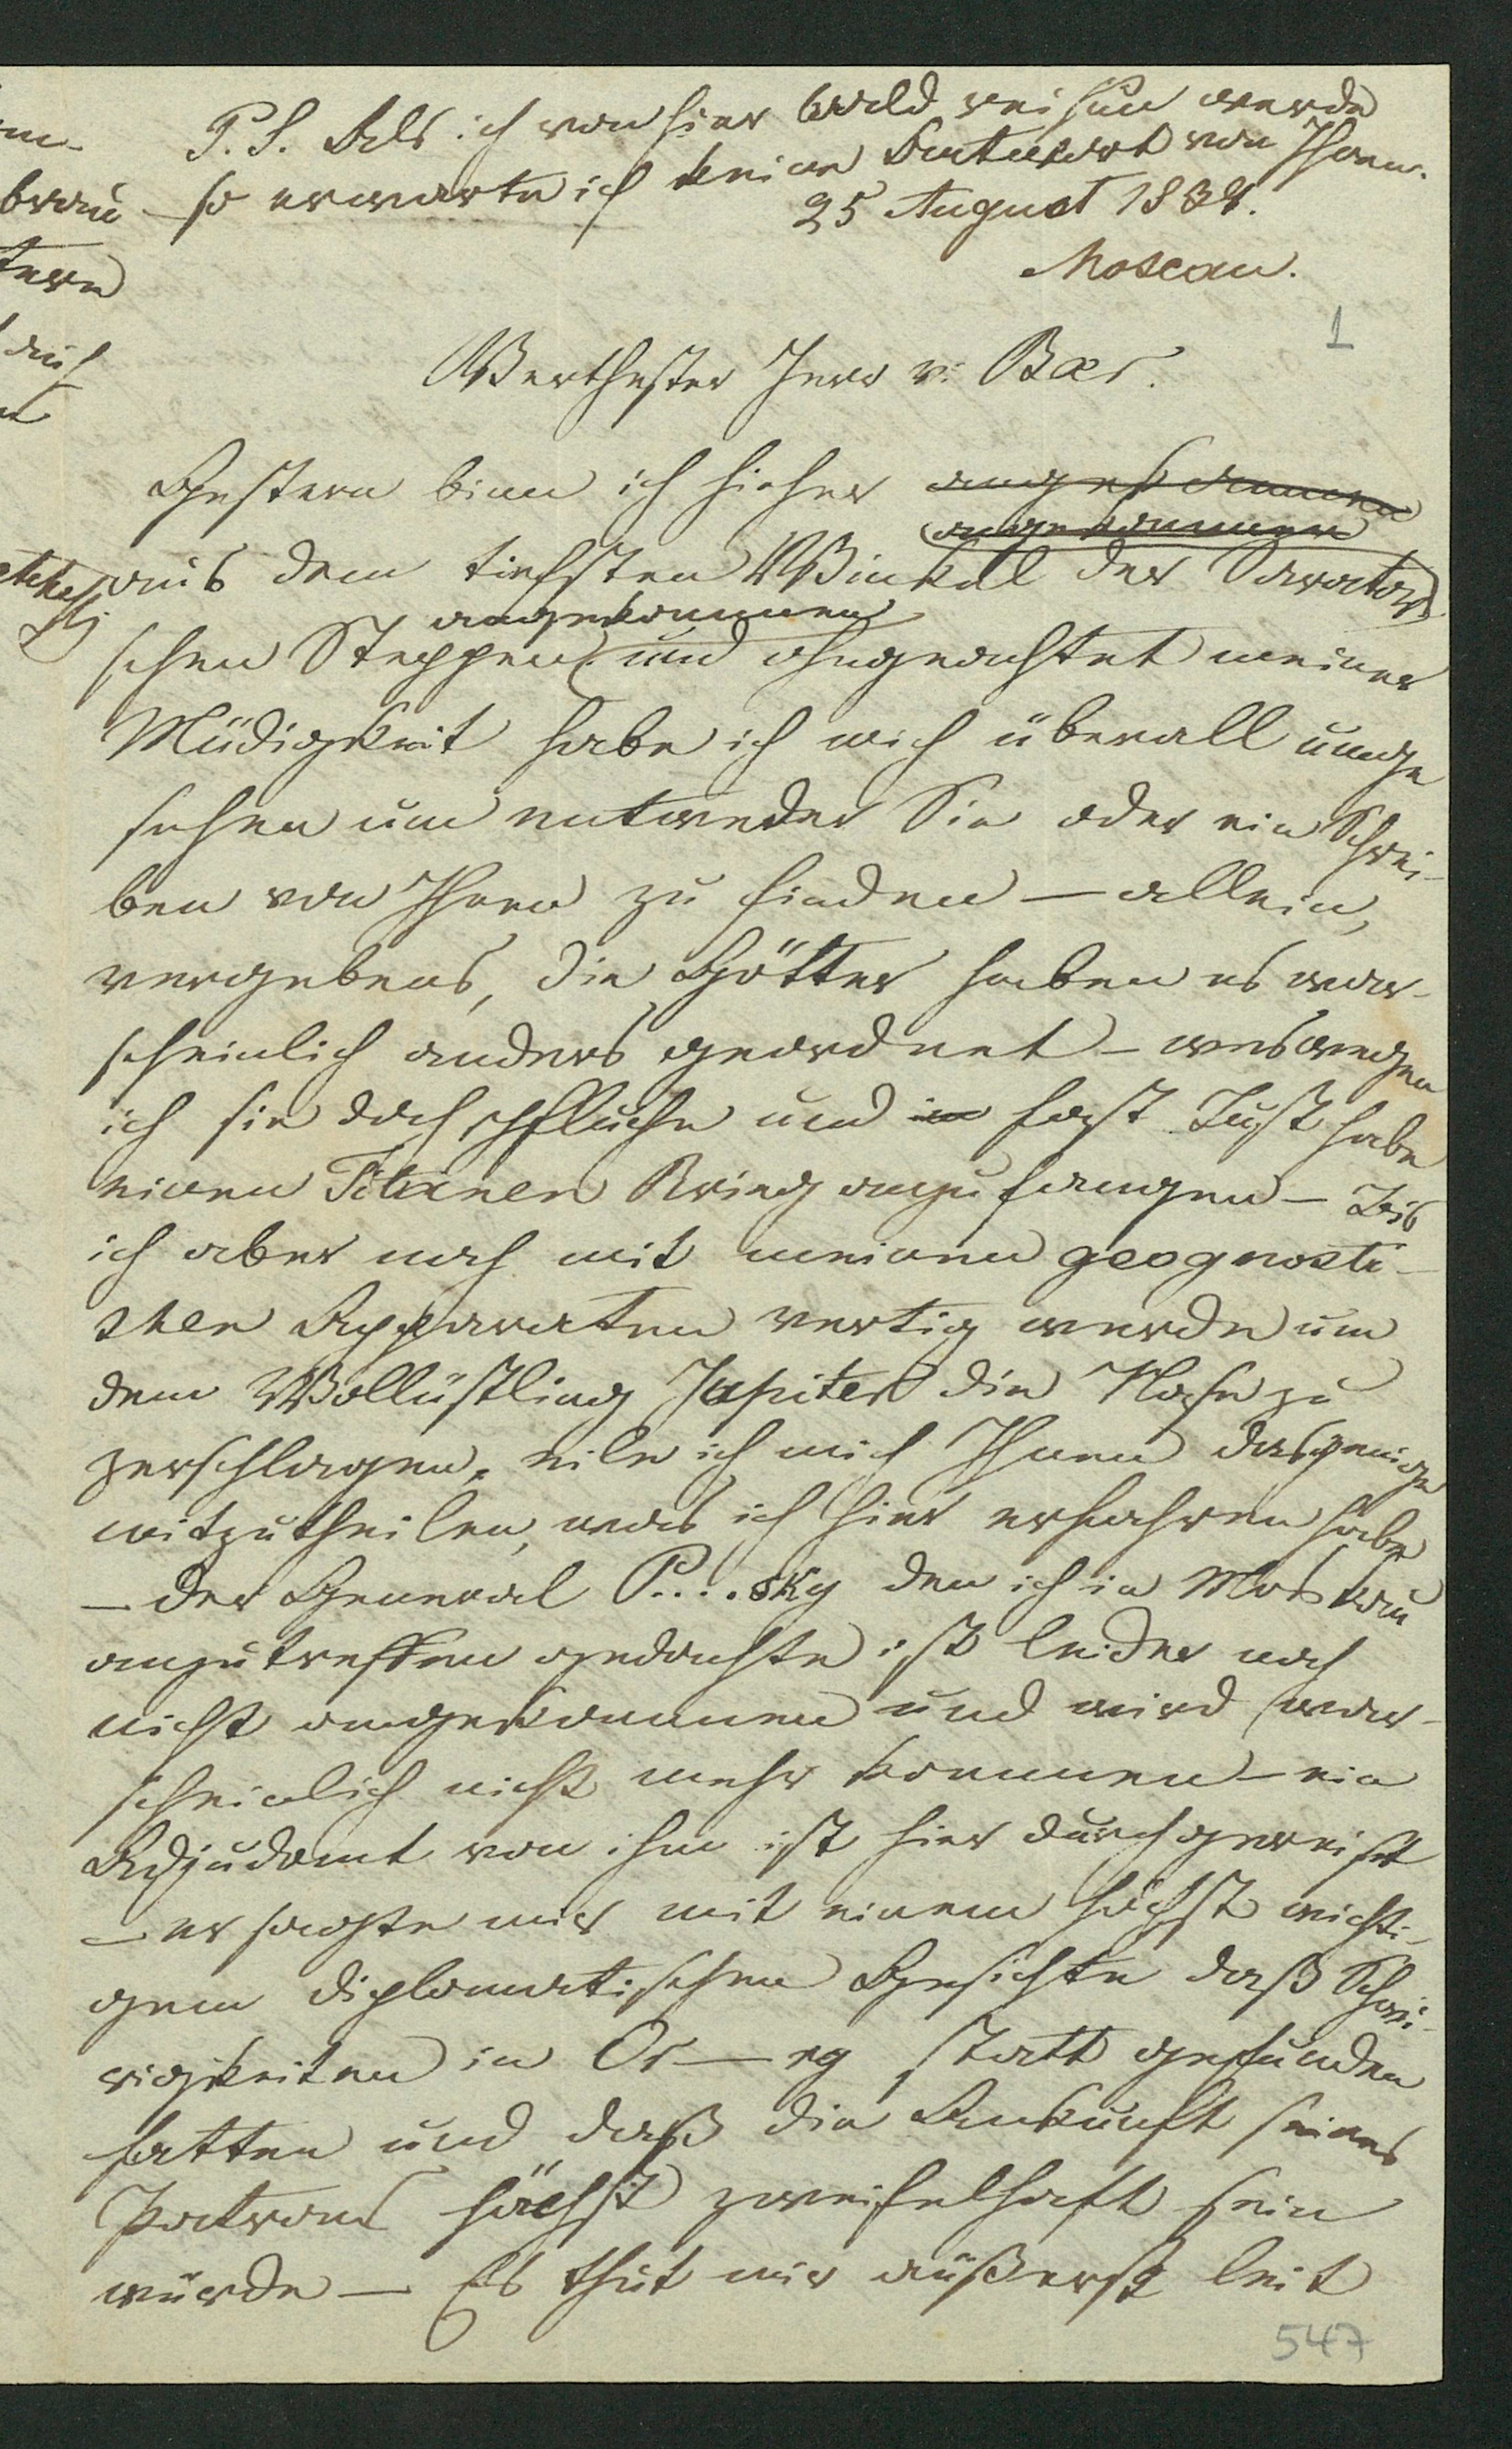 P.S. Als ich von hier bald reisen werde
so erwarte ich keine Antwort von Ihnen.
25 August 1838.
Moscau.
1
Werthester Herr v: Baer.
Gestern binn ich hieher angekommen
angekommen
aus dem tiefsten Winkel der Saratow
angekommen
schen Steppen und ohngeachtet meiner
Müdigkeit habe ich mich überall umge
sehen um entweder Sie oder ein Schrei-
ben von Ihnen zu finden — allein,
vergebens, die Götter haben es war-
scheinlich anders geordnet — weswegen
ich sie doch pfluche und in fast Lust habe
einen Titanen Krieg anzufangen — Bis
ich aber noch mit meinen geognosti-
schen Apparaten vertig werde um
dem Wollüstling Jupiter die Nase zu
zerschlagen, eile ich mich Ihnen dasjenige
mitzutheilen, was ich hier erfahren habe
— der General P....sky den ich in Moskau
anzutreffen gedachte ist leider noch
nicht angekommen und wird war-
scheinlich nicht mehr kommen — ein
Adjudant von ihm ist hier durchgereist
— er sagte mir mit einem höchst wichti-
gem diplomatischen Gesichte daß Schwi-
rigkeiten in Or—rg statt gefunden
hatten und daß die Ankunft seines
Patrons höchst zweifelhaft sein
würde — Es thut mir äußerst leit
547